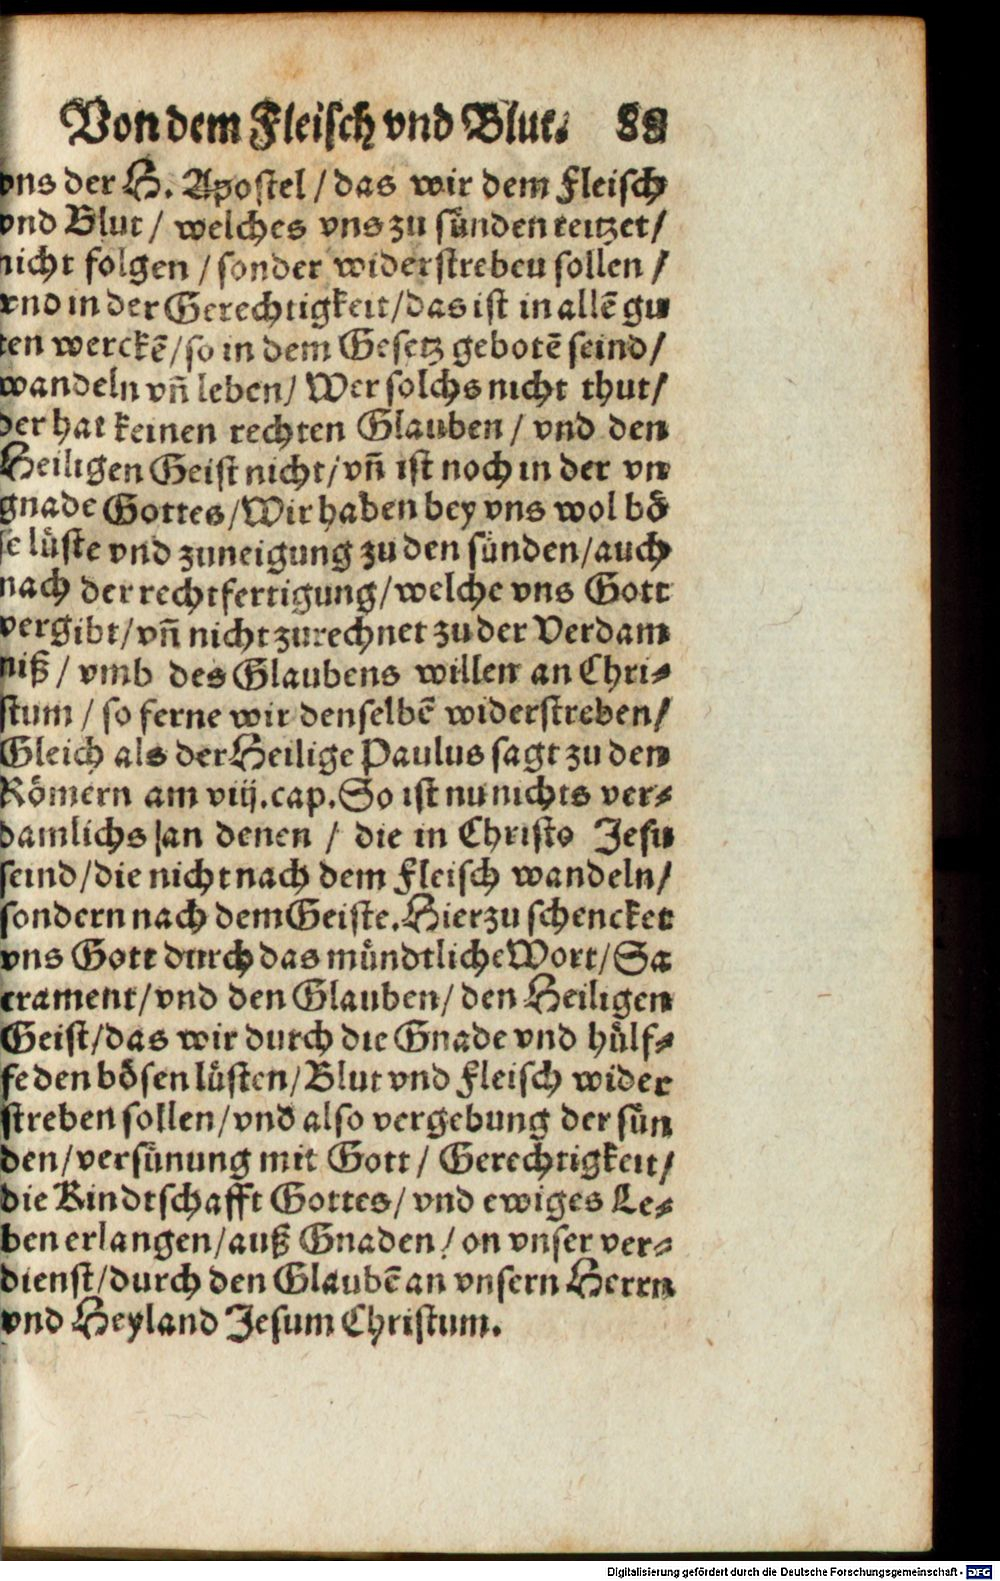 Von dem Fleisch vnd Blut. 88
vns der H. Apostel / das wir dem Fleisch
vnd Blut / welches vns zu sünden reitzet /
nicht folgen / sonder widerstreben sollen /
vnd in der Gerechtigkeit / das ist in allē gu
ten werckē / so in dem Gesetz gebotē seind /
wandeln vñ leben / Wer solchs nicht thut /
der hat keinen rechten Glauben / vnd den
Heiligen Geist nicht / vñ ist noch in der vn
gnade Gottes / Wir haben bey vns wol bö
se lüste vnd zuneigung zu den sünden / auch
nach der rechtfertigung / welche vns Gott
vergibt / vñ nicht zurechnet zu der Verdam
niß / vmb des Glaubens willen an Chri-
stum / so ferne wir denselbē widerstreben /
Gleich als der Heilige Paulus sagt zu den
Römern am viij. cap. So ist nu nichts ver-
damlichs an denen / die in Christo Jesu
seind / die nicht nach dem Fleisch wandeln /
sondern nach dem Geiste. Hierzu schencket
vns Gott durch das mündtliche Wort / Sa
crament / vnd den Glauben / den Heiligen
Geist / das wir durch die Gnade vnd hülf-
fe den bösen lüsten / Blut vnd Fleisch wider
streben sollen / vnd also vergebung der sün
den / versünung mit Gott / Gerechtigkeit /
die Kindtschafft Gottes / vnd ewiges Le-
ben erlangen / auß Gnaden / on vnser ver-
dienst / durch den Glaubē an vnsern Herrn
vnd Heyland Jesum Christum.
Digitalisierung gefördert durch die Deutsche Forschungsgemeinschaft - DFG